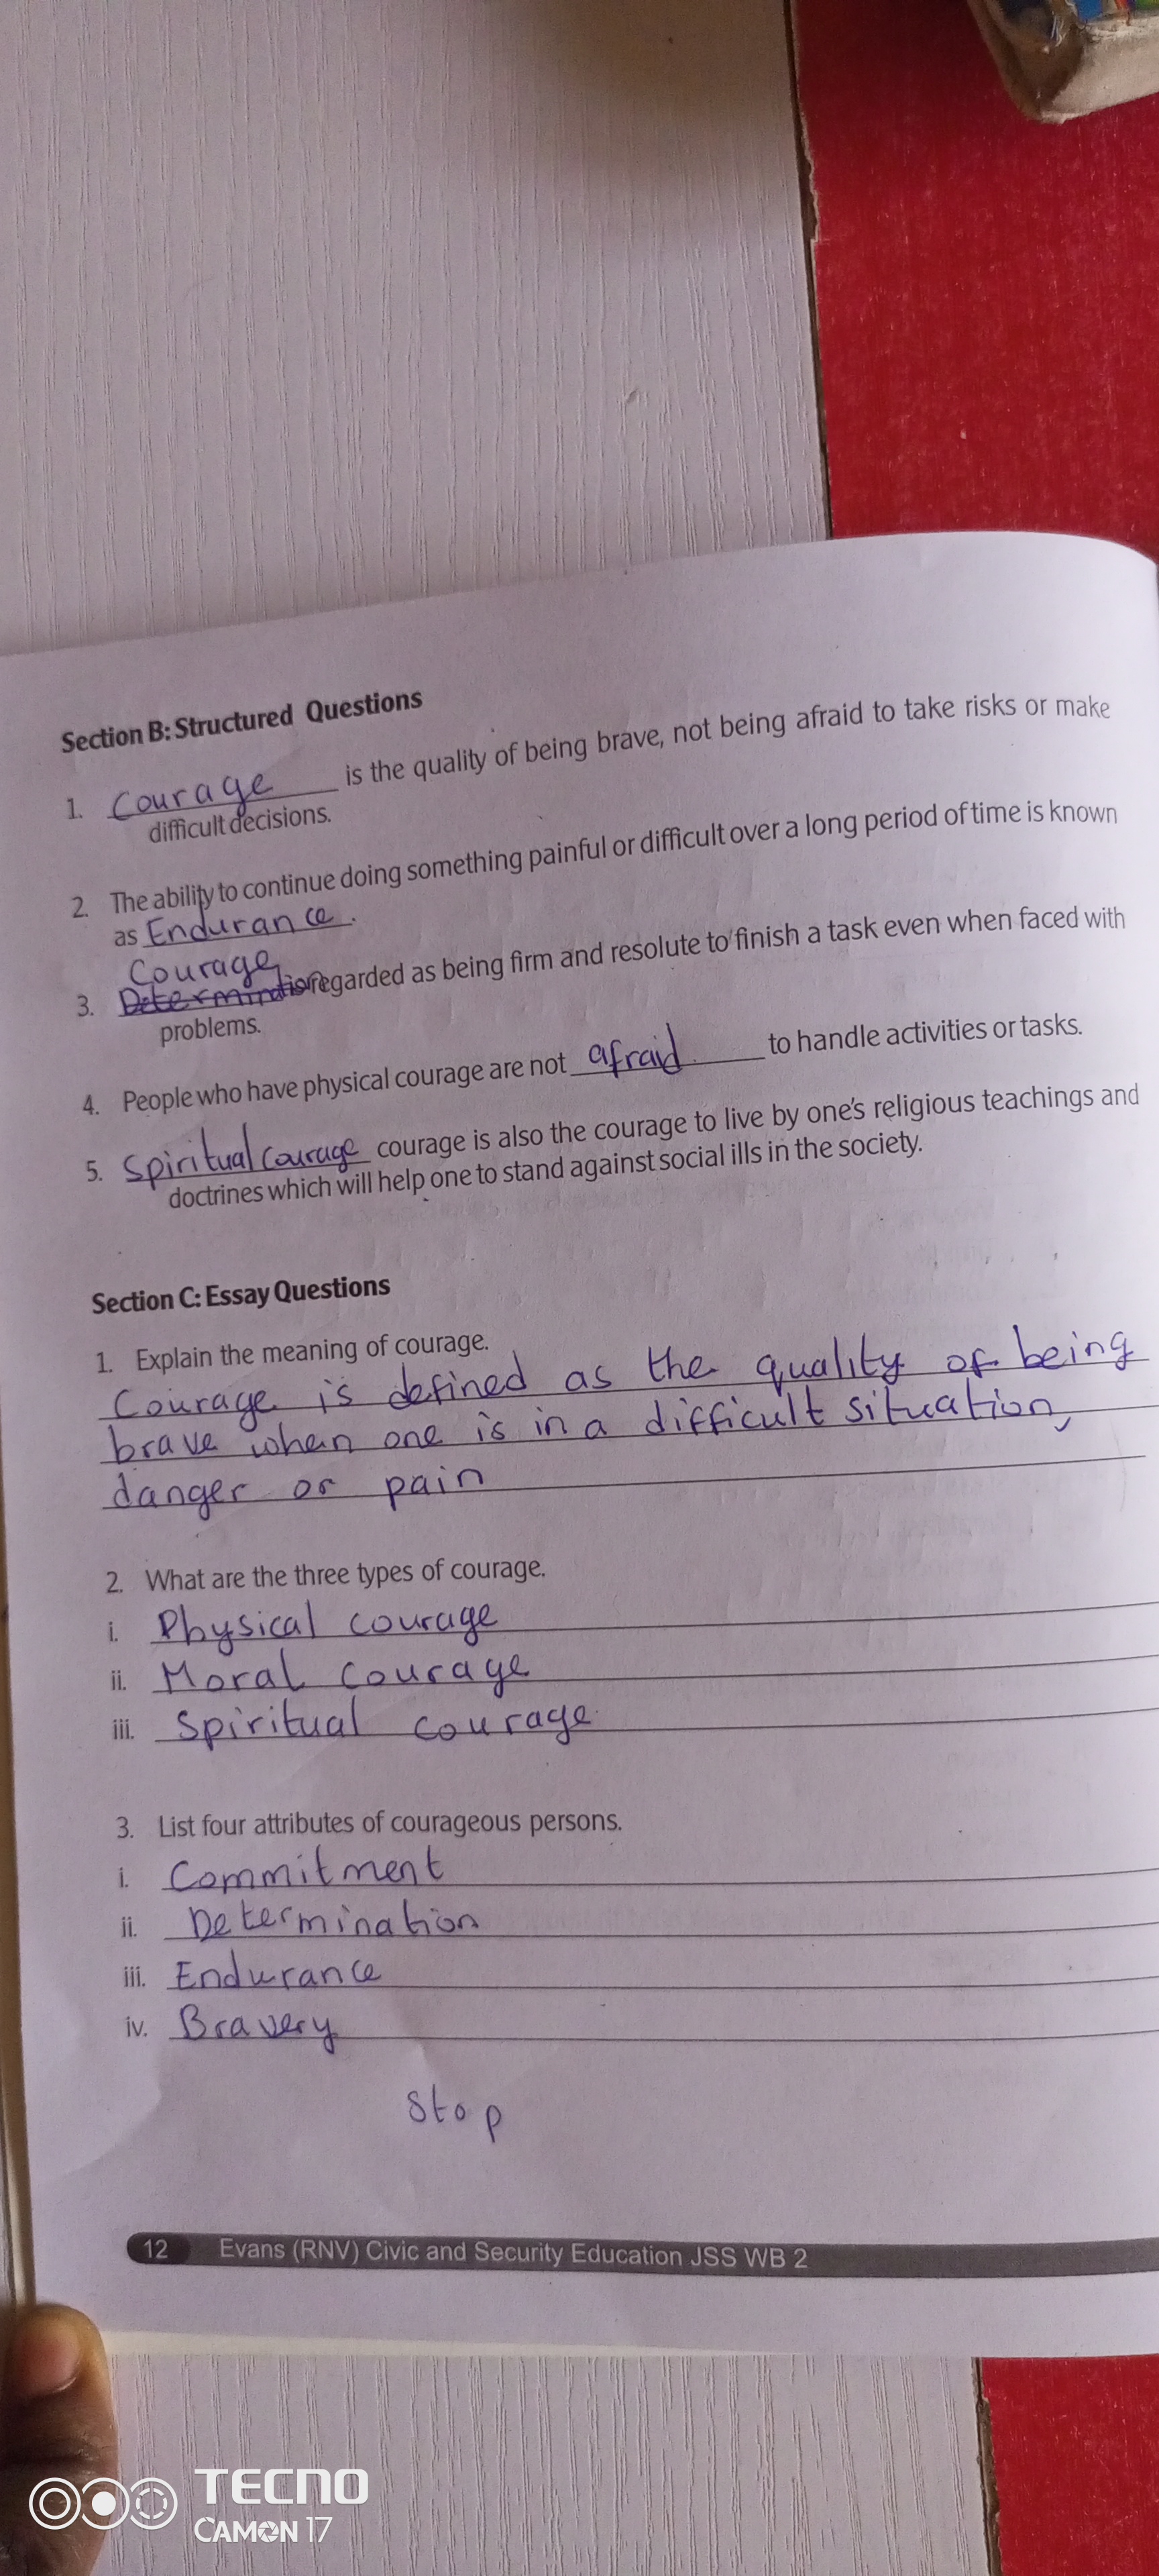 Section B: Structured Questions
1. Courage is the quality of being brave, not being afraid to take risks or make
difficult decisions.
2. The ability to continue doing something painful or difficult over a long period of time is known
as Endurance.
Courage
3. regarded as being firm and resolute to finish a task even when faced with
problems.
4. People who have physical courage are not afraid to handle activities or tasks.
5. Spiritual courage courage is also the courage to live by one's religious teachings and
doctrines which will help one to stand against social ills in the society.
Section C: Essay Questions
1. Explain the meaning of courage.
Courage is defined as the quality of being
brave when one is in a difficult situation,
danger or pain
2. What are the three types of courage.
i. Physical courage
ii. Moral courage
iii. Spiritual courage
3. List four attributes of courageous persons.
i. Commitment
ii. Determination
iii. Endurance
iv. Bravery
Stop
12 Evans (RNV) Civic and Security Education JSS WB 2
TECNO
CAMON 17